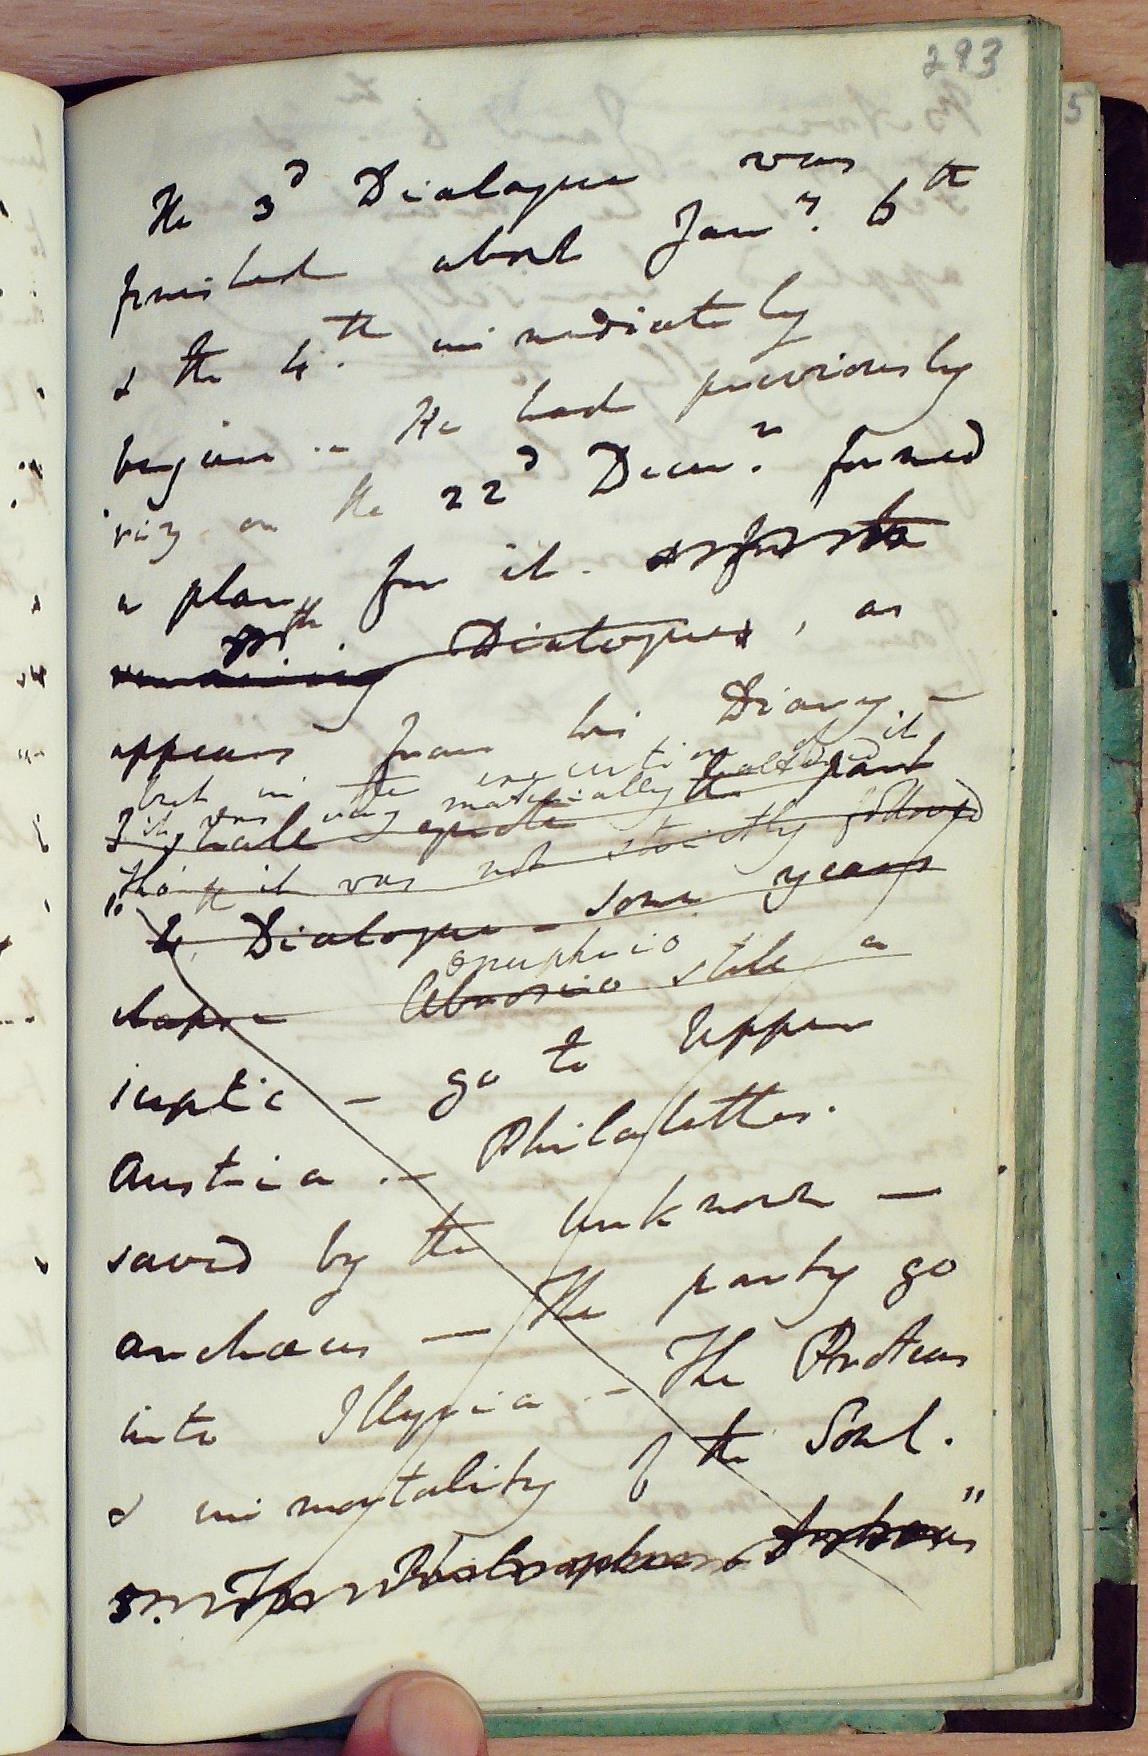 293
The 3d Dialogue was
finished about Jany. 6th
& the 4th immediately
begun – He had previously
viz. on the 22d Decr. formed
a plan for it. & for the
5th
remaining Dialogues, as
appears from his Diary –
but in the execution of it
it was very materially altered
I shall quote the part
tho' it was not strictly followed
"4. Dialogue – some years
Onuphrio
elapse Ambrosio still a
sceptic – go to Upper
Austria – Philalethes.
saved by the unknown –
anchœus – The party go
into Illyria – The Proteus
& immortality of the Soul.
5. The Philosopher"